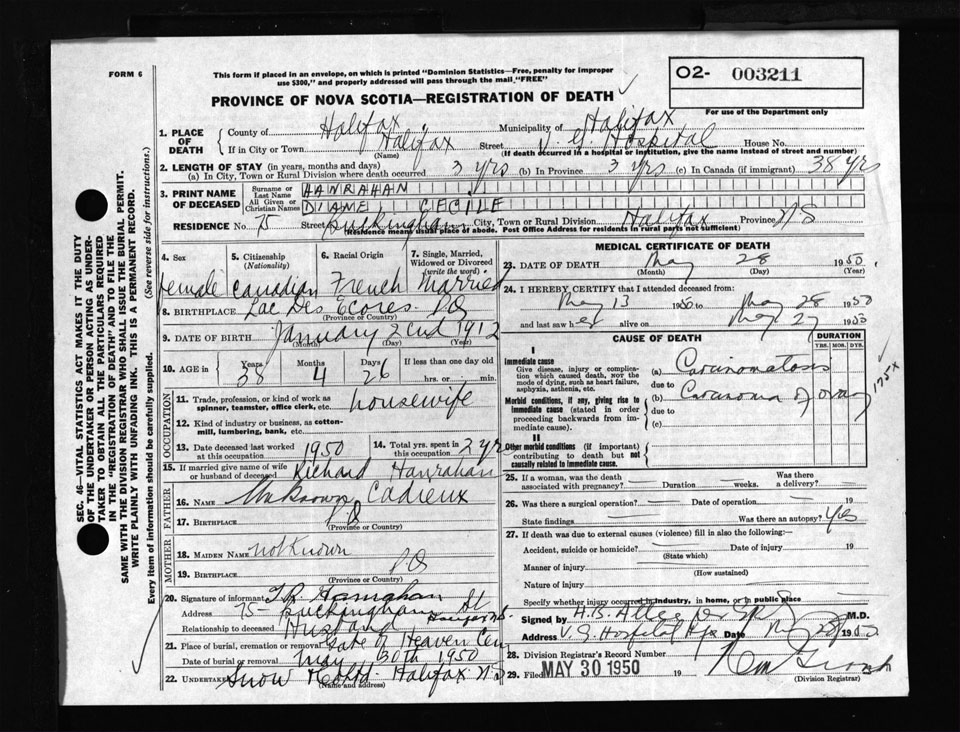 FORM 6
This form if placed in an envelope, on which is printed "Dominion Statistics—Free, penalty for improper
use $300," and properly addressed will pass through the mail "FREE"
O2- 003211
PROVINCE OF NOVA SCOTIA—REGISTRATION OF DEATH
For use of the Department only
1. PLACE OF DEATH County of Halifax Municipality of Halifax
If in City or Town Halifax Street V. G. Hospital House No.
(Name) (If death occurred in a hospital or institution, give the name instead of street and number)
2. LENGTH OF STAY (in years, months and days)
(a) In City, Town or Rural Division where death occurred 3 yrs (b) In Province 3 yrs (c) In Canada (if immigrant) 38 yrs
3. PRINT NAME OF DECEASED Surname or Last Name HANRAHAN
All Given or Christian Names DIAME, CECILE
RESIDENCE No. 75 Street Buckingham City, Town or Rural Division Halifax Province N S
(Residence means usual place of abode. Post Office Address for residents in rural parts not sufficient)
4. Sex 5. Citizenship (Nationality) 6. Racial Origin 7. Single, Married, Widowed or Divorced (write the word)
Female Canadian French Married
8. BIRTHPLACE Lac Des Ecores P.Q
(Province or Country)
9. DATE OF BIRTH January 22nd 1912
(Month) (Day) (Year)
10. AGE in Years Months Days If less than one day old
38 4 26 hrs. or min.
OCCUPATION
11. Trade, profession, or kind of work as spinner, teamster, office clerk, etc. housewife
12. Kind of industry or business, as cotton-mill, lumbering, bank, etc.
13. Date deceased last worked at this occupation 1950 14. Total yrs. spent in this occupation 2 yrs
15. If married give name of wife or husband of deceased Richard Hanrahan
FATHER
16. NAME Unknown Cadieux
17. BIRTHPLACE P Q
(Province or Country)
MOTHER
18. MAIDEN NAME not Known
19. BIRTHPLACE P Q
(Province or Country)
20. Signature of informant Hanrahan
Address 75 Buckingham St Halifax N.S.
Relationship to deceased Husband
21. Place of burial, cremation or removal Gate of Heaven Cem
Date of burial or removal May 30th 1950
22. Undertaker Snow Halifax N.S
(Name and address)
MEDICAL CERTIFICATE OF DEATH
23. DATE OF DEATH May 28 1950
(Month) (Day) (Year)
24. I HEREBY CERTIFY that I attended deceased from:
May 13 1950 to May 28 1950
and last saw her alive on May 27 1950
CAUSE OF DEATH
DURATION
YRS. MOS. DYS.
I
Immediate cause
Give disease, injury or complication which caused death, NOT the mode of dying, such as heart failure, asphyxia, asthenia, etc.
(a) Carcinomatosis
due to
Morbid conditions, if any, giving rise to immediate cause (stated in order of proceeding backwards from immediate cause).
(b) Carcinoma of ovary
due to
(c)
175X
II
Other morbid conditions (if important) contributing to death but not causally related to immediate cause.
25. If a woman, was the death associated with pregnancy? Duration weeks. Was there a delivery?
26. Was there a surgical operation? Date of operation 19
State findings Was there an autopsy? Yes
27. If death was due to external causes (violence) fill in also the following:
Accident, suicide or homicide? Date of injury 19
(State which)
Manner of injury
(How sustained)
Nature of injury
Specify whether injury occurred in industry, in home, or in public place
Signed by H.B. M.D.
Address V. G. Hospital Hfx Date May 28 1950
28. Division Registrar's Record Number
29. Filed MAY 30 1950 19
(Division Registrar)
SEC. 46—VITAL STATISTICS ACT MAKES IT THE DUTY
OF THE UNDERTAKER OR PERSON ACTING AS UNDER-
TAKER TO OBTAIN ALL THE PARTICULARS REQUIRED
IN THE "REGISTRATION OF DEATH" AND TO FILE THE
SAME WITH THE DIVISION REGISTRAR WHO SHALL ISSUE THE BURIAL PERMIT.
WRITE PLAINLY WITH UNFADING INK. THIS IS A PERMANENT RECORD.
Every item of information should be carefully supplied. (See reverse side for instructions.)